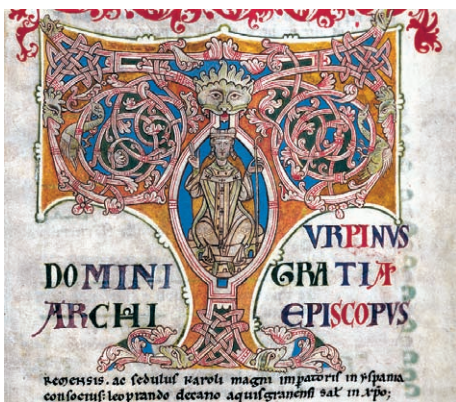 TVRPINVS
DOMINI GRATIA
ARCHI EPISCOPVS
REMENSIS. ac sedulus Karoli magni impatoris in yspania
consocius: leoprando decano aquisgranensi sal in xpo;